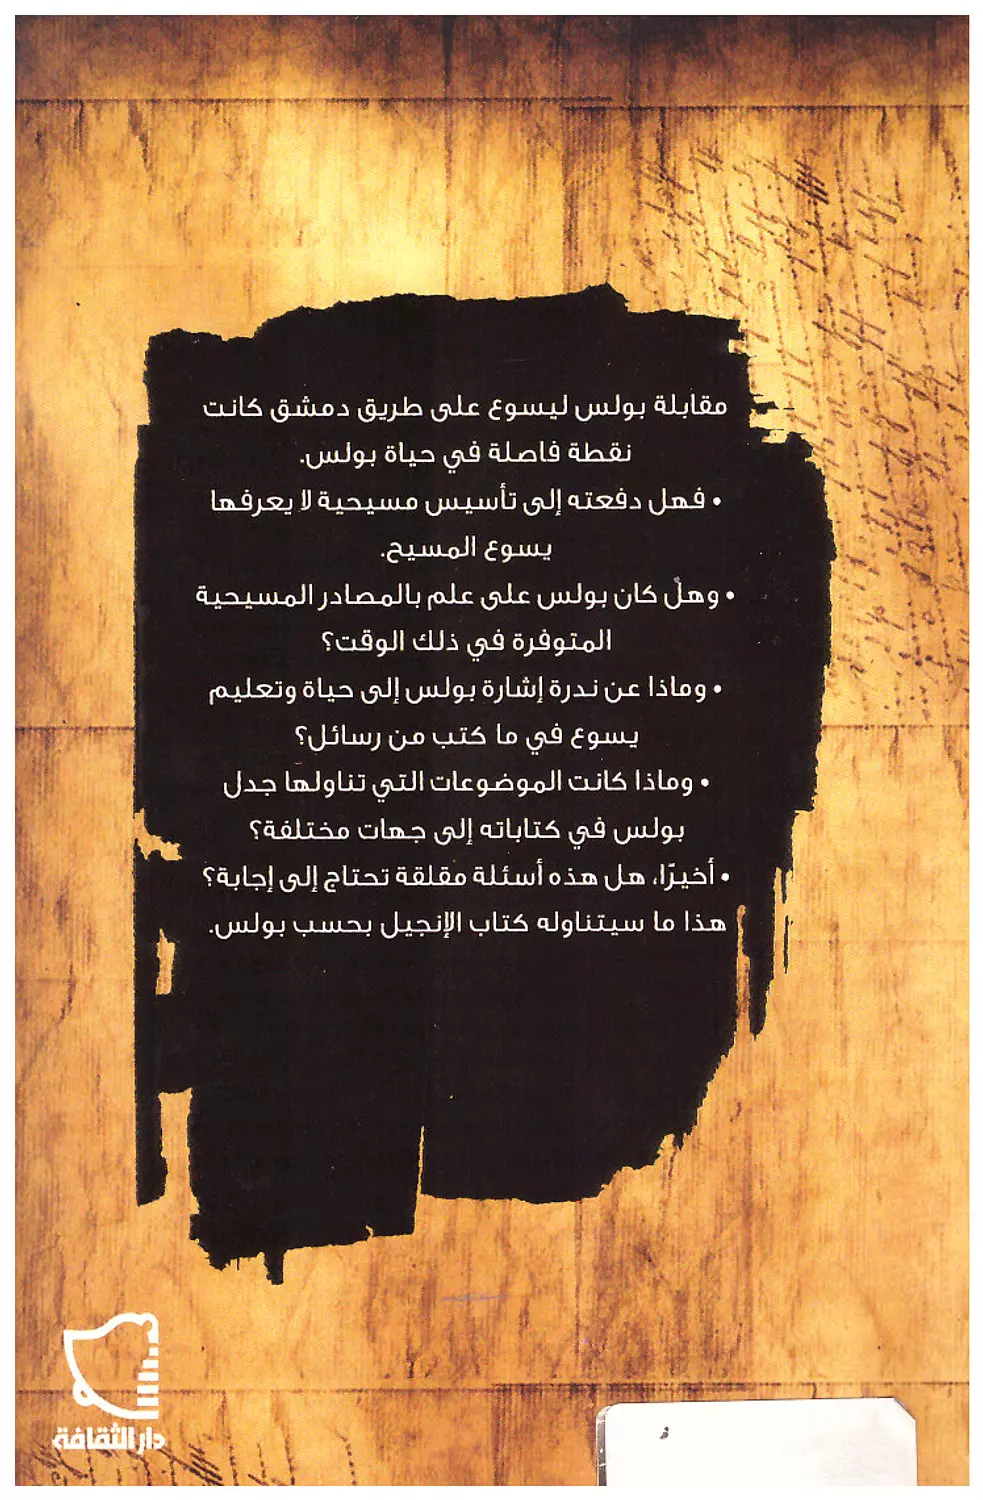 مقابلة بولس ليسوع على طريق دمشق كانت
نقطة فاصلة في حياة بولس.
• فهل دفعته إلى تأسيس مسيحية لا يعرفها
يسوع المسيح.
• وهل كان بولس على علم بالمصادر المسيحية
المتوفرة في ذلك الوقت؟
• وماذا عن ندرة إشارة بولس إلى حياة وتعليم
يسوع في ما كتب من رسائل؟
• وماذا كانت الموضوعات التي تناولها جدل
بولس في كتاباته إلى جهات مختلفة؟
• أخيرًا، هل هذه أسئلة مقلقة تحتاج إلى إجابة؟
هذا ما سيتناوله كتاب الإنجيل بحسب بولس.
دار الثقافة